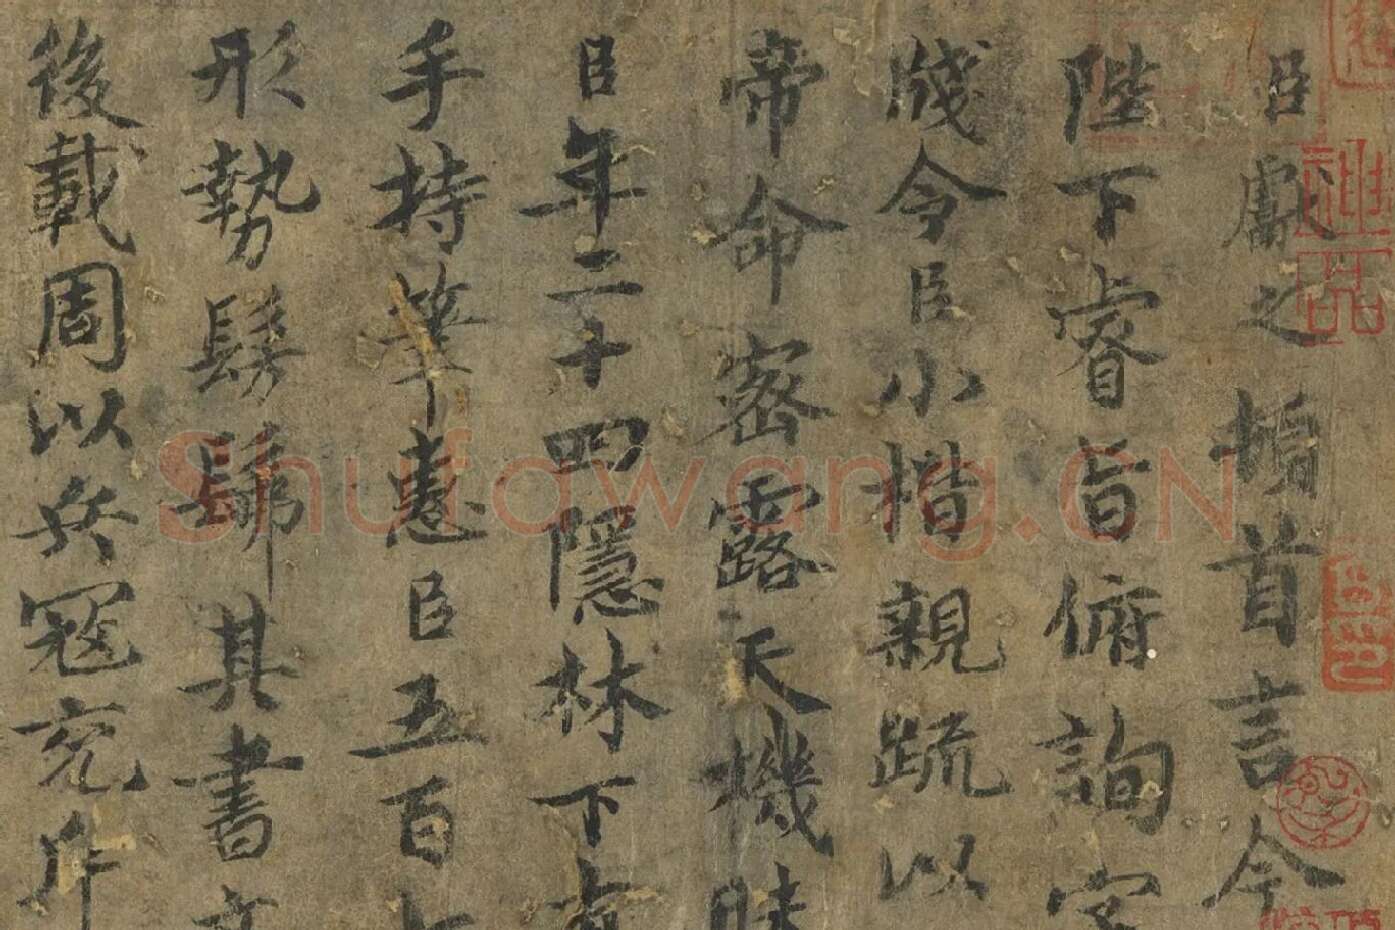 臣獻之頓首言今
陛下睿旨俯詢字
牋令臣小楷親疏以
帝命密露天機昧
臣年二十四隱林下有
手持筆惠臣五百七
形勢髣髴其書文
後載周以兵寇充斥
Shufawang.CN